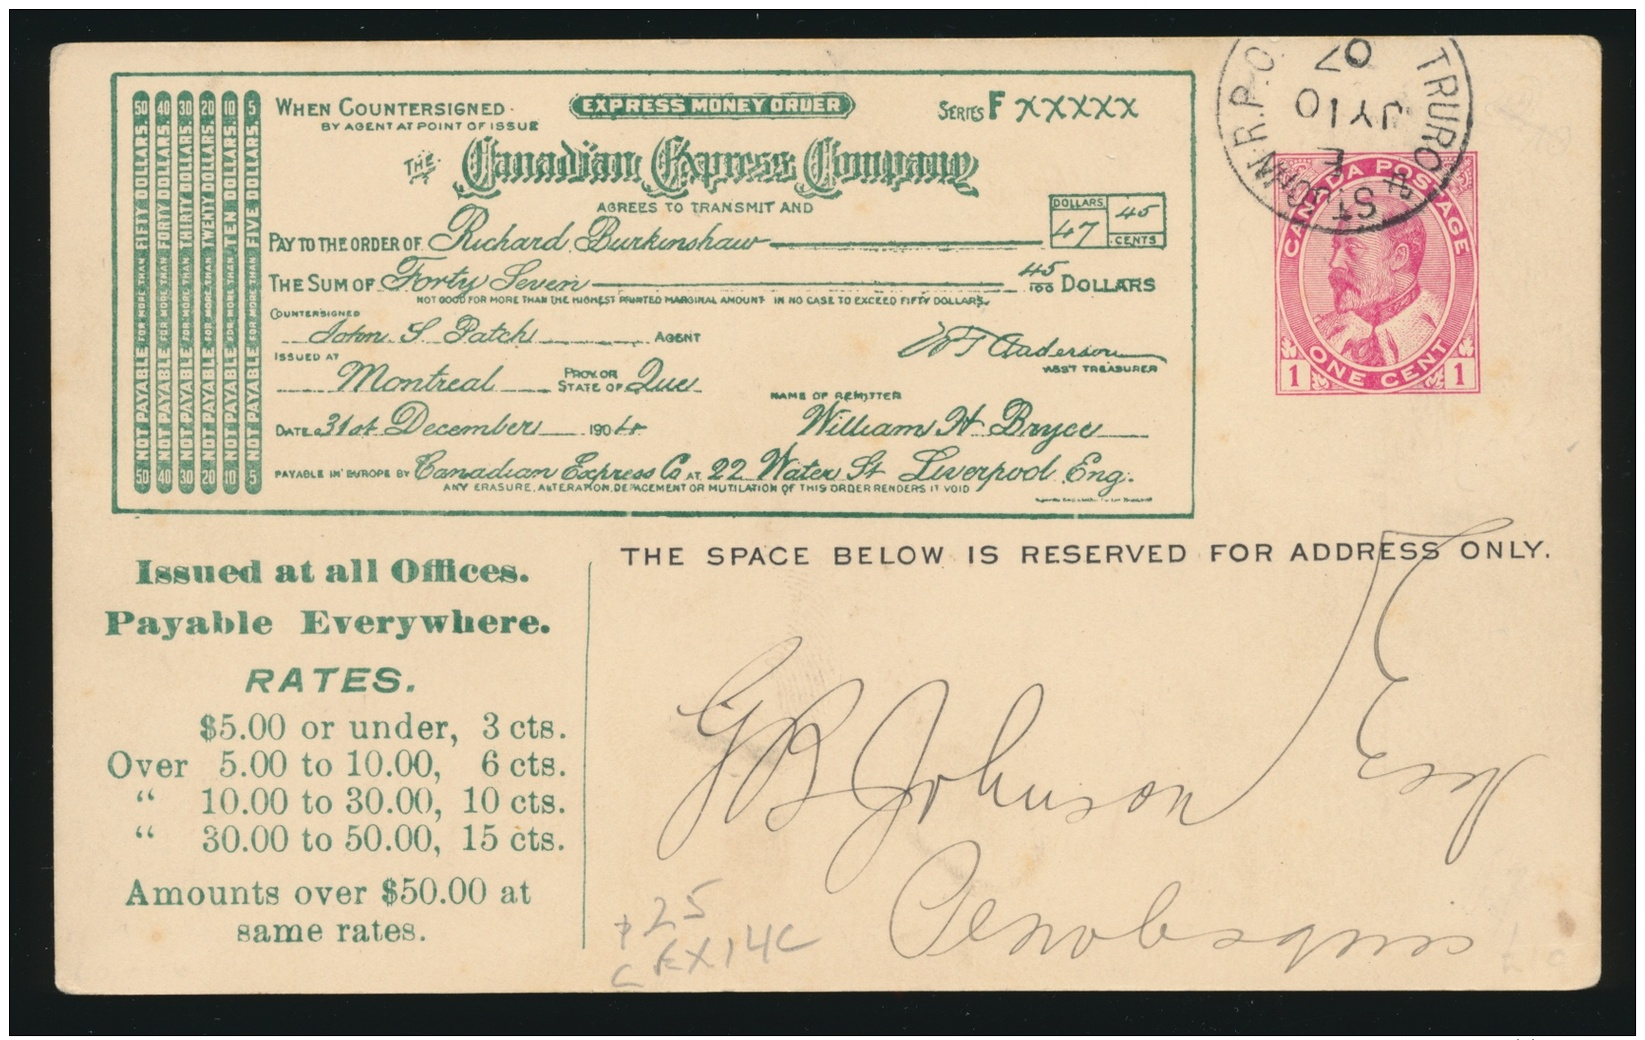 50 40 30 20 10 5
NOT PAYABLE FOR MORE THAN FIFTY DOLLARS.
NOT PAYABLE FOR MORE THAN FORTY DOLLARS.
NOT PAYABLE FOR MORE THAN THIRTY DOLLARS.
NOT PAYABLE FOR MORE THAN TWENTY DOLLARS.
NOT PAYABLE FOR MORE THAN TEN DOLLARS.
NOT PAYABLE FOR MORE THAN FIVE DOLLARS.
50 40 30 20 10 5
WHEN COUNTERSIGNED EXPRESS MONEY ORDER SERIES F XXXXX
BY AGENT AT POINT OF ISSUE
THE Canadian Express Company
AGREES TO TRANSMIT AND
DOLLARS 47 45 CENTS
PAY TO THE ORDER OF Richard Burkinshaw
THE SUM OF Forty Seven 45/100 DOLLARS
NOT GOOD FOR MORE THAN THE HIGHEST PRINTED MARGINAL AMOUNT IN NO CASE TO EXCEED FIFTY DOLLARS.
COUNTERSIGNED
John S Patch AGENT
ASS'T TREASURER
ISSUED AT
Montreal PROV. OR STATE OF Que
NAME OF REMITTER
DATE 31st December 1904 William H Bryce
PAYABLE IN EUROPE BY Canadian Express Co AT 22 Water St Liverpool Eng.
ANY ERASURE, ALTERATION, DEFACEMENT OR MUTILATION OF THIS ORDER RENDERS IT VOID
ST. JOHN R.P.O. TRURO
E
JY 10
07
CANADA POSTAGE
ONE CENT
1 1
THE SPACE BELOW IS RESERVED FOR ADDRESS ONLY.
Issued at all Offices.
Payable Everywhere.
RATES.
$5.00 or under, 3 cts.
Over 5.00 to 10.00, 6 cts.
“ 10.00 to 30.00, 10 cts.
“ 30.00 to 50.00, 15 cts.
Amounts over $50.00 at
same rates.
G B Johnson
Penobsquis
25
EX14C